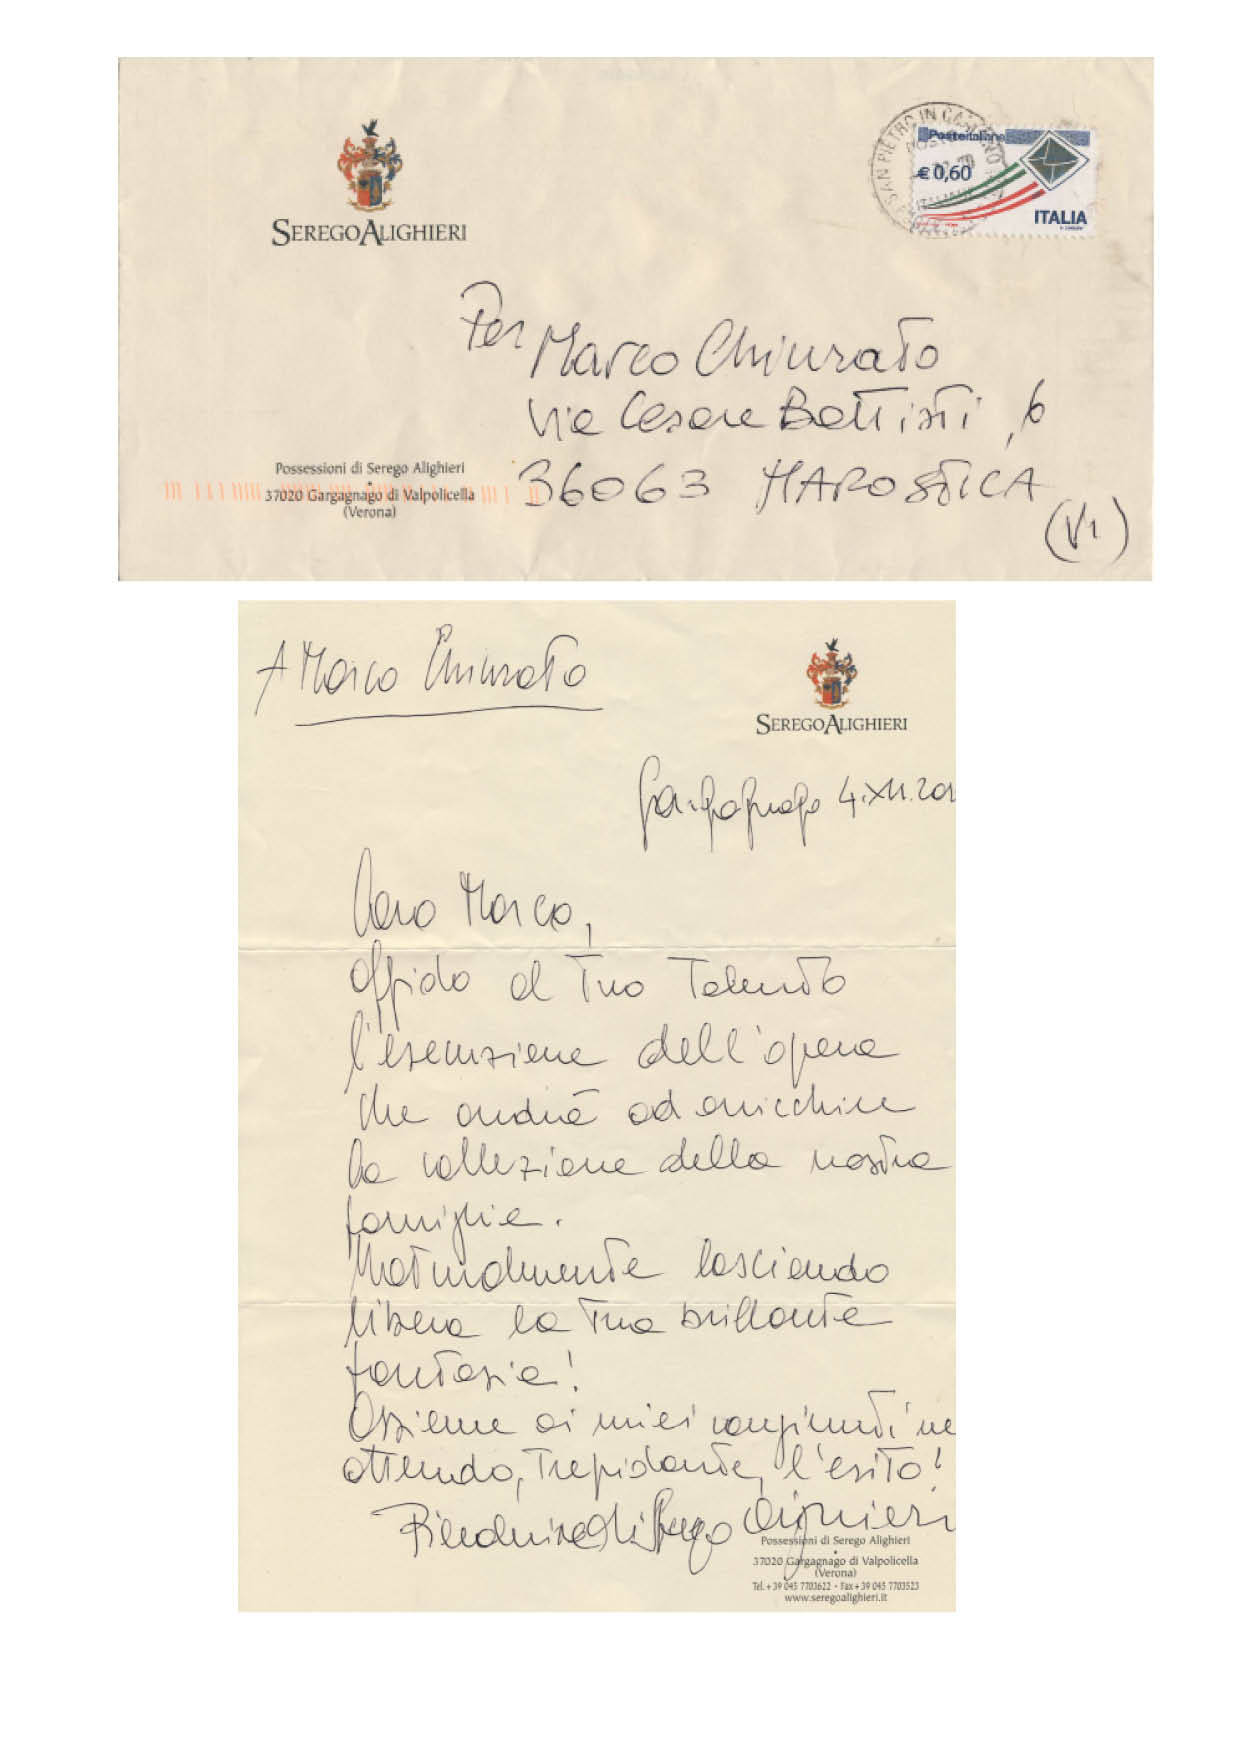 SEREGO ALIGHIERI
SAN PIETRO IN CARIANO
Posteitaliane
€ 0,60
ITALIA
Per Marco Chiurato
Via Cesare Battisti, 6
36063 MAROSTICA
(VI)
Possessioni di Serego Alighieri
37020 Gargagnago di Valpolicella
(Verona)
A Marco Chiurato
SEREGO ALIGHIERI
Gargagnago 4.XII.201
Caro Marco,
affido al tuo talento
l'esecuzione dell'opera
che andrà ad arricchire
la collezione della nostra
famiglia.
Naturalmente lasciando
libera la tua brillante
fantasia!
Assieme ai miei congiunti ne
attendo, trepidante, l'esito!
Pieralvise di Serego Alighieri
Possessioni di Serego Alighieri
37020 Gargagnago di Valpolicella
(Verona)
Tel. +39 045 7703622 • Fax +39 045 7703523
www.seregoalighieri.it